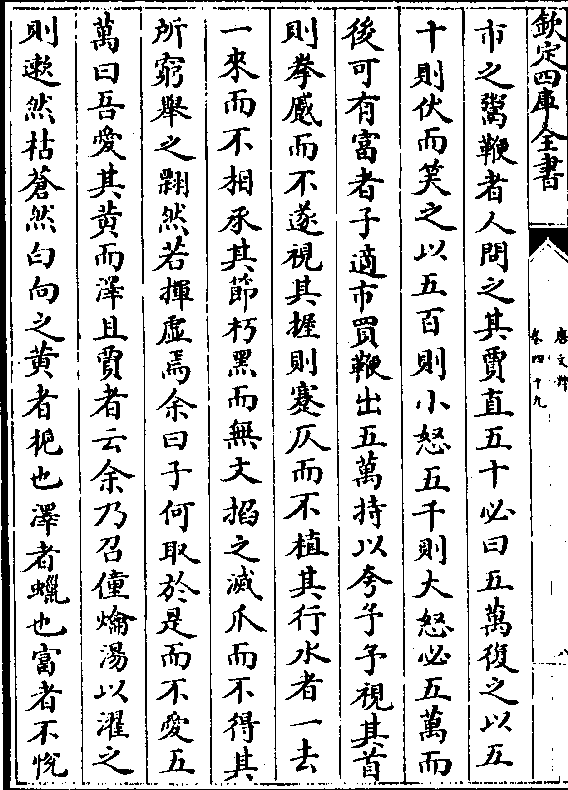 欽定四庫全書
唐文粹
卷四十九
八
市之鬻鞭者人問之其賈直五十必曰五萬復之以五
十則伏而笑之以五百則小怒五千則大怒必五萬而
後可有富者子適市買鞭出五萬持以夸予予視其首
則拳蹙而不遂視其握則蹇仄而不植其行水者一去
一來而不相承其節朽黑而無文掐之滅爪而不得其
所窮舉之翲然若揮虛焉余曰子何取於是而不愛五
萬曰吾愛其黄而澤且賈者云余乃召僮爚湯以濯之
則遫然枯蒼然白向之黄者梔也澤者蠟也富者不悅